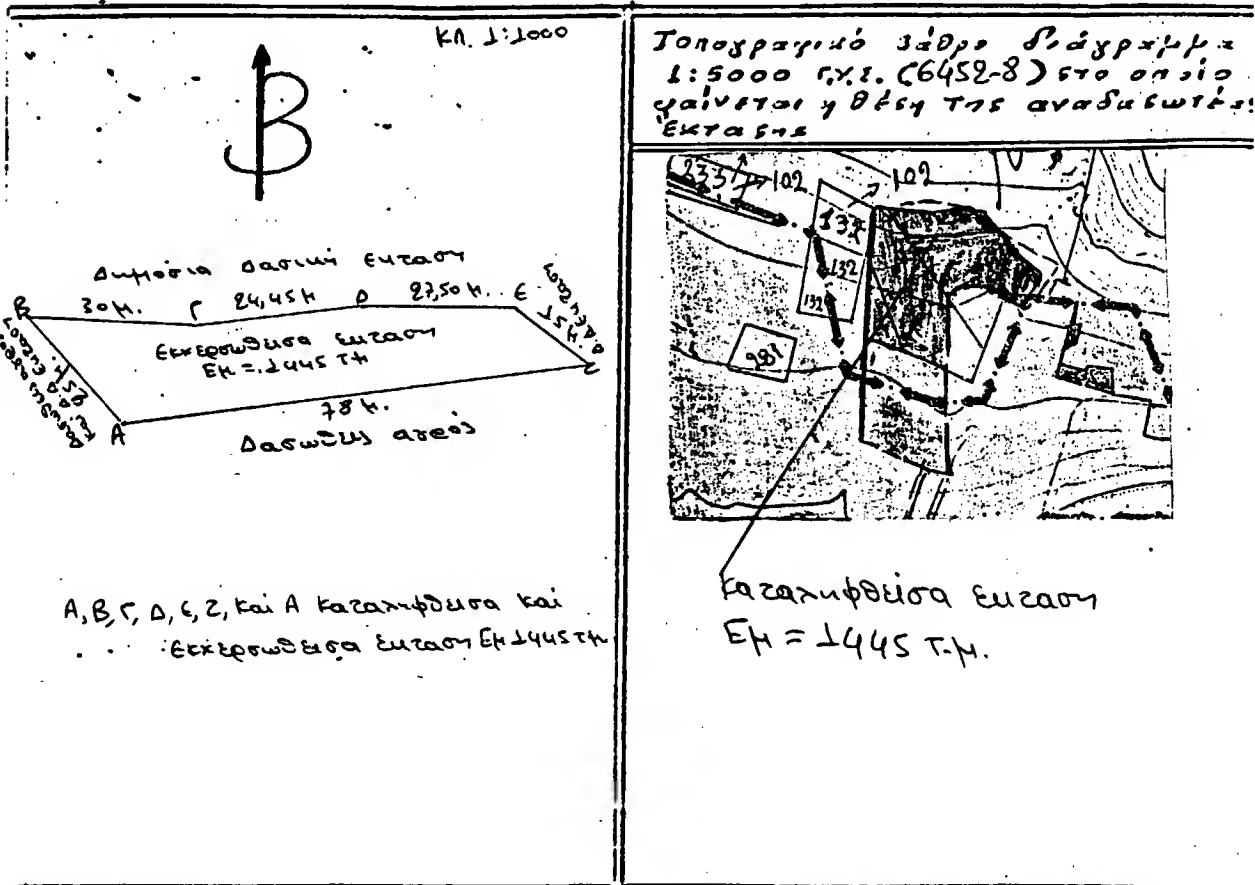 ΚΛ. 1:1000
Β
Δημόσια Δασική έκταση
Β 30 μ. Γ 24,45 μ Δ 27,50 μ. Ε
15 μ
Δ. Δ. Έκταση
Εκχερσωθείσα έκταση
Εμ = 1445 τμ
25 μ.
Α 78 μ. Ζ
Δασωθείς αγρός
Α, Β, Γ, Δ, Ε, Ζ, Και Α Καταληφθείσα και
Εκχερσωθείσα έκταση Εμ 1445 τμ
Τοπογραφικό βάθρο διάγραμμα
1:5000 Γ.Υ.Σ. (6452-8) στο οποίο
φαίνεται η θέση της αναδασωτέας
έκτασης
233 102 102
132
132
281
Καταληφθείσα έκταση
Εμ = 1445 τ.μ.